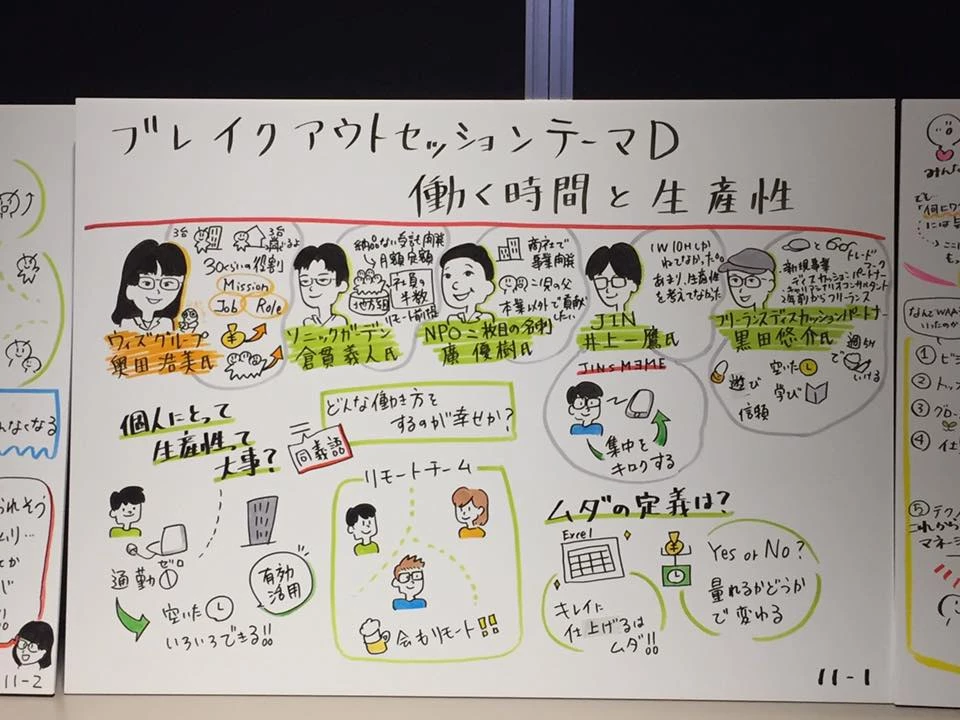 ブレイクアウトセッションテーマD
働く時間と生産性
3台
30くらいの役割
Mission
Job
Role
ウィズグループ
奥田浩美氏
納品ない受託開発
月額定額
地方組
社員の
半数
リモート前提
ソニックガーデン
倉貫義人氏
両社で
事業開発
2児の父
本業以外で貢献
したい
NPO二枚目の名刺
廣優樹氏
1W10Hしか
ねてなかった。
あまり、生産性
を考えてなかった
JIN
井上一鷹氏
JINS MEME
集中を
キロクする
と
トレードマーク
・新規事業
ディスカッションパートナー
2年前からフリーランス
フリーランスディスカッションパートナー
黒田悠介氏
遊び
空いた
学び
信頼
個人にとって
生産性って
大事?
同義語
どんな働き方を
するのが幸せか?
通勤0
ゼロ
空いた
いろいろできる!!
有効
活用
リモートチーム
会もリモート!!
ムダの定義は?
Excel
キレイに
仕上げるは
ムダ!!
Yes or No?
量れるかどうか
で変わる
11-1
んなくなる
られそう
ムリ…
とか
11-2
みんな
なんでWAA
いったのか
①
②トッ
③グロー
④仕
⑤テクノ
これから
マネージ